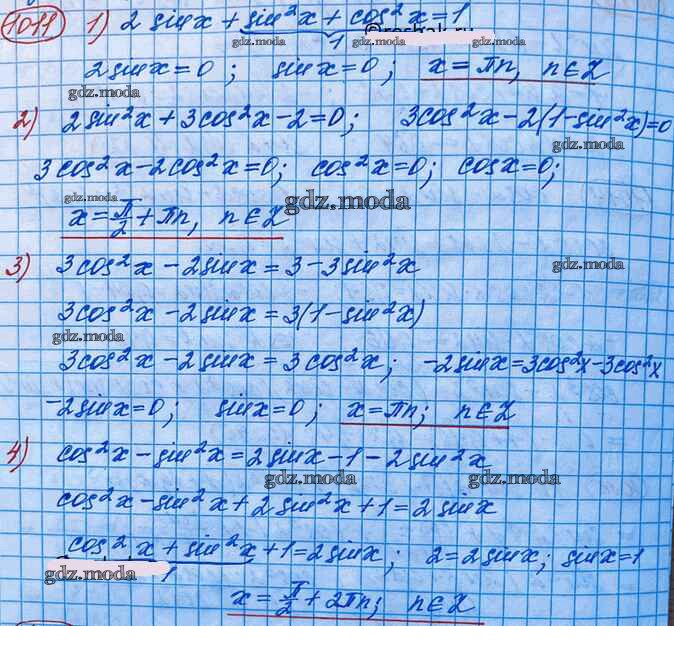 1011 1) 2 sin x + sin²x + cos²x = 1
1
©reshak.ru
gdz.moda gdz.moda gdz.moda
2 sin x = 0 ; sin x = 0 ; x = πn, n ∈ Z
gdz.moda
2) 2 sin²x + 3 cos²x - 2 = 0; 3 cos²x - 2(1 - sin²x) = 0
gdz.moda
3 cos²x - 2 cos²x = 0; cos²x = 0; cos x = 0;
gdz.moda gdz.moda
x = π/2 + πn, n ∈ Z
3) 3 cos²x - 2 sin x = 3 - 3 sin²x
gdz.moda
3 cos²x - 2 sin x = 3(1 - sin²x)
gdz.moda
3 cos²x - 2 sin x = 3 cos²x ; -2 sin x = 3 cos²x - 3 cos²x
-2 sin x = 0 ; sin x = 0 ; x = πn; n ∈ Z
gdz.moda
4) cos²x - sin²x = 2 sin x - 1 - 2 sin²x
gdz.moda gdz.moda
cos²x - sin²x + 2 sin²x + 1 = 2 sin x
cos²x + sin²x + 1 = 2 sin x ; 2 = 2 sin x ; sin x = 1
gdz.moda 1 gdz.moda
x = π/2 + 2πn; n ∈ Z